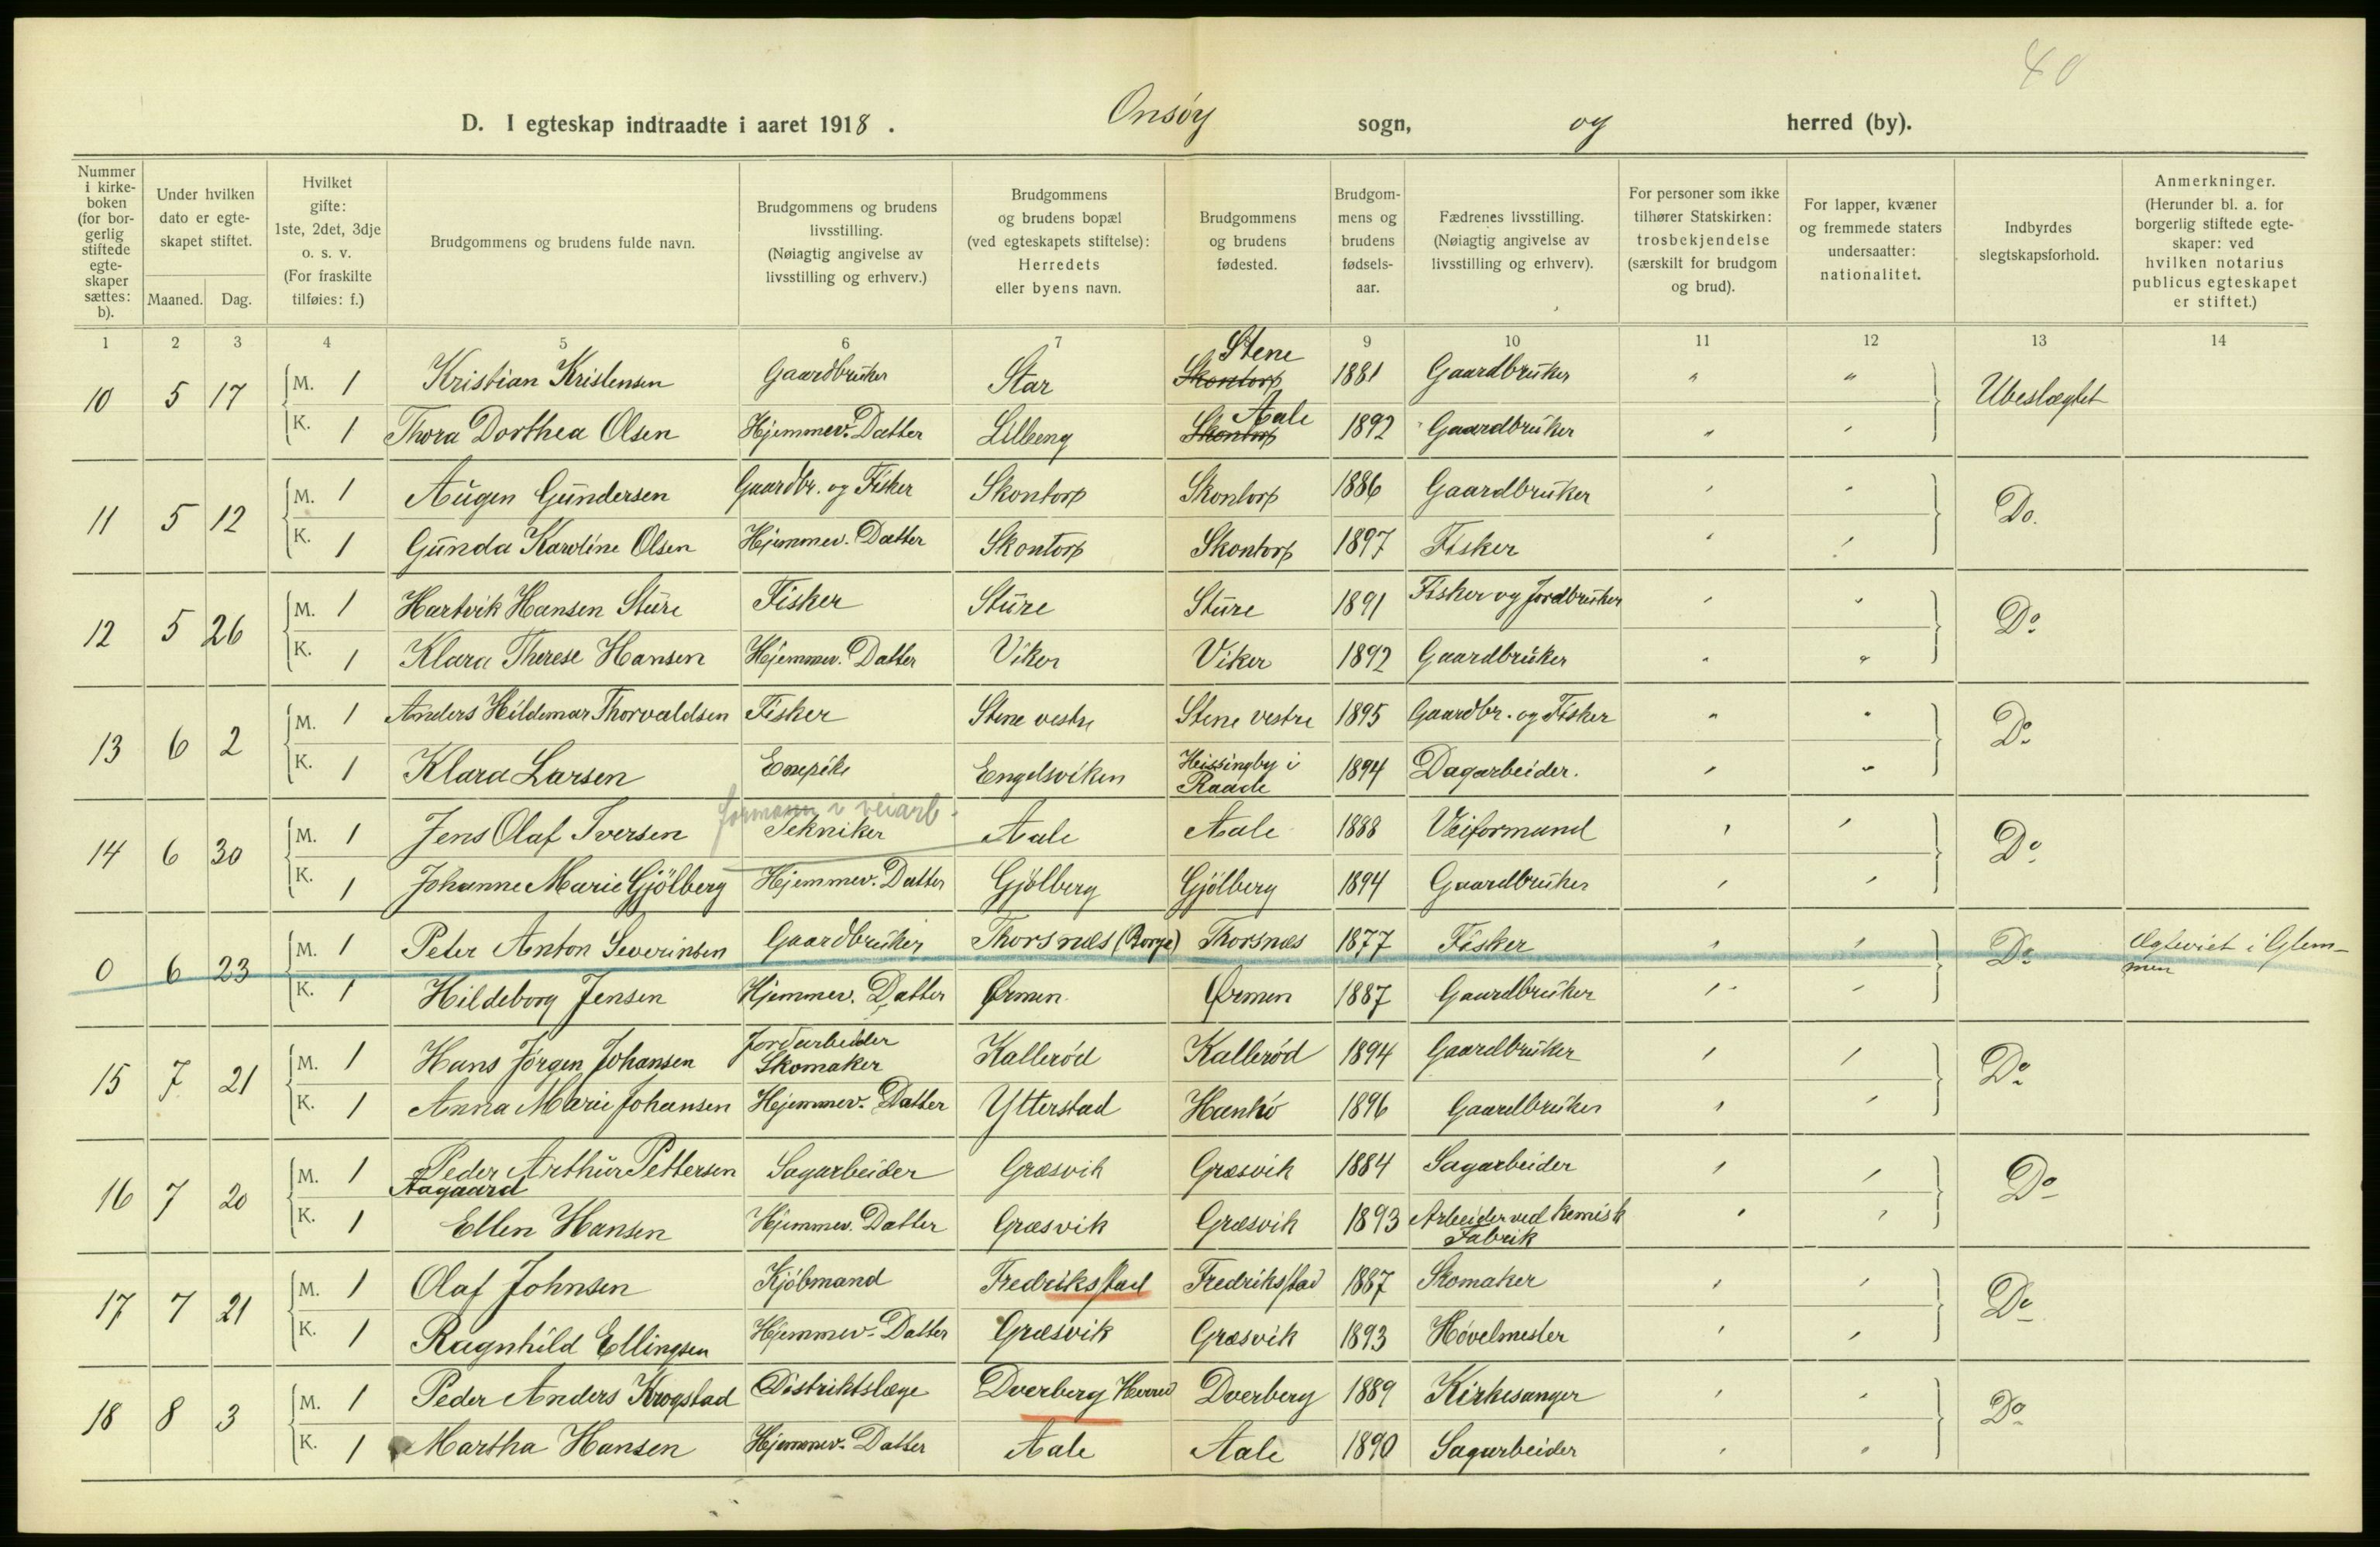 40
D. I egteskap indtraadte i aaret 1918. Onsøy sogn, og herred (by).
Nummer i kirke-boken (for bor-gerlig stiftede egte-skaper sættes: b).
Under hvilken dato er egte-skapet stiftet.
Maaned. Dag.
Hvilket gifte: 1ste, 2det, 3dje o. s. v. (For fraskilte tilføies: f.)
Brudgommens og brudens fulde navn.
Brudgommens og brudens livsstilling. (Nøiagtig angivelse av livsstilling og erhverv.)
Brudgommens og brudens bopæl (ved egteskapets stiftelse): Herredets eller byens navn.
Brudgommens og brudens fødested.
Brudgom-mens og brudens fødsels-aar.
Fædrenes livsstilling. (Nøiagtig angivelse av livsstilling og erhverv).
For personer som ikke tilhører Statskirken: trosbekjendelse (særskilt for brudgom og brud).
For lapper, kvæner og fremmede staters undersaatter: nationalitet.
Indbyrdes slegtskapsforhold.
Anmerkninger. (Herunder bl. a. for borgerlig stiftede egte-skaper: ved hvilken notarius publicus egteskapet er stiftet.)
1 2 3 4 5 6 7 8 9 10 11 12 13 14
10 5 17 M. 1 Kristian Kristensen Gaardbruker Star Skontorp Stene 1881 Gaardbruker " " Ubeslægtet
K. 1 Thora Dorthea Olsen Hjemmev. Datter Lilleeng Skontorp Aale 1892 Gaardbruker " "
11 5 12 M. 1 Augen Gundersen Gaardbr. og Fisker Skontorp Skontorp 1886 Gaardbruker " " Do.
K. 1 Gunda Karoline Olsen Hjemmev. Datter Skontorp Skontorp 1897 Fisker " "
12 5 26 M. 1 Hartvik Hansen Sture Fisker Sture Sture 1891 Fisker og Jordbruker " " Do
K. 1 Klara Therese Hansen Hjemmev. Datter Viker Viker 1892 Gaardbruker " "
13 6 2 M. 1 Anders Hildemar Thorvaldsen Fisker Stene vestre Stene vestre 1895 Gaardbr. og Fisker " " Do
K. 1 Klara Larsen Engelsviken Heissingby i Raade 1894 Dagarbeider. " "
14 6 30 M. 1 Jens Olaf Iversen formann v veiarb. Tekniker Aale Aale 1888 Veiformand " " Do
K. 1 Johanne Marie Gjölberg Hjemmev. Datter Gjölberg Gjölberg 1894 Gaardbruker " "
0 6 23 M. 1 Peter Anton Severinsen Gaardbruker Thorsnæs (Borge) Thorsnæs 1877 Fisker " " Do Ægteviet i Glem-
men
K. 1 Hildeborg Jensen Hjemmev. Datter Ørmen Ørmen 1887 Gaardbruker " "
15 7 21 M. 1 Hans Jørgen Johansen Jordarbeider Skomaker Kallerød Kallerød 1894 Gaardbruker " " Do
K. 1 Anna Marie Johansen Hjemmev. Datter Ytterstad Hankø 1896 Gaardbruker " "
16 7 20 M. 1 Peder Arthur Pettersen Aagaard Sagarbeider Græsvik Græsvik 1884 Sagarbeider " " Do
K. 1 Ellen Hansen Hjemmev. Datter Græsvik Græsvik 1893 Arbeider ved kemisk Fabrik " "
17 7 21 M. 1 Olaf Johnsen Kjøbmand Fredriksstad Fredriksstad 1887 Skomaker " " Do
K. 1 Ragnhild Ellingsen Hjemmev. Datter Græsvik Græsvik 1893 Høvelmester " "
18 8 3 M. 1 Peder Anders Krogstad Distriktslæge Dverberg Herred Dverberg 1889 Kirkesanger " " Do
K. 1 Martha Hansen Hjemmev. Datter Aale Aale 1890 Sagarbeider " "